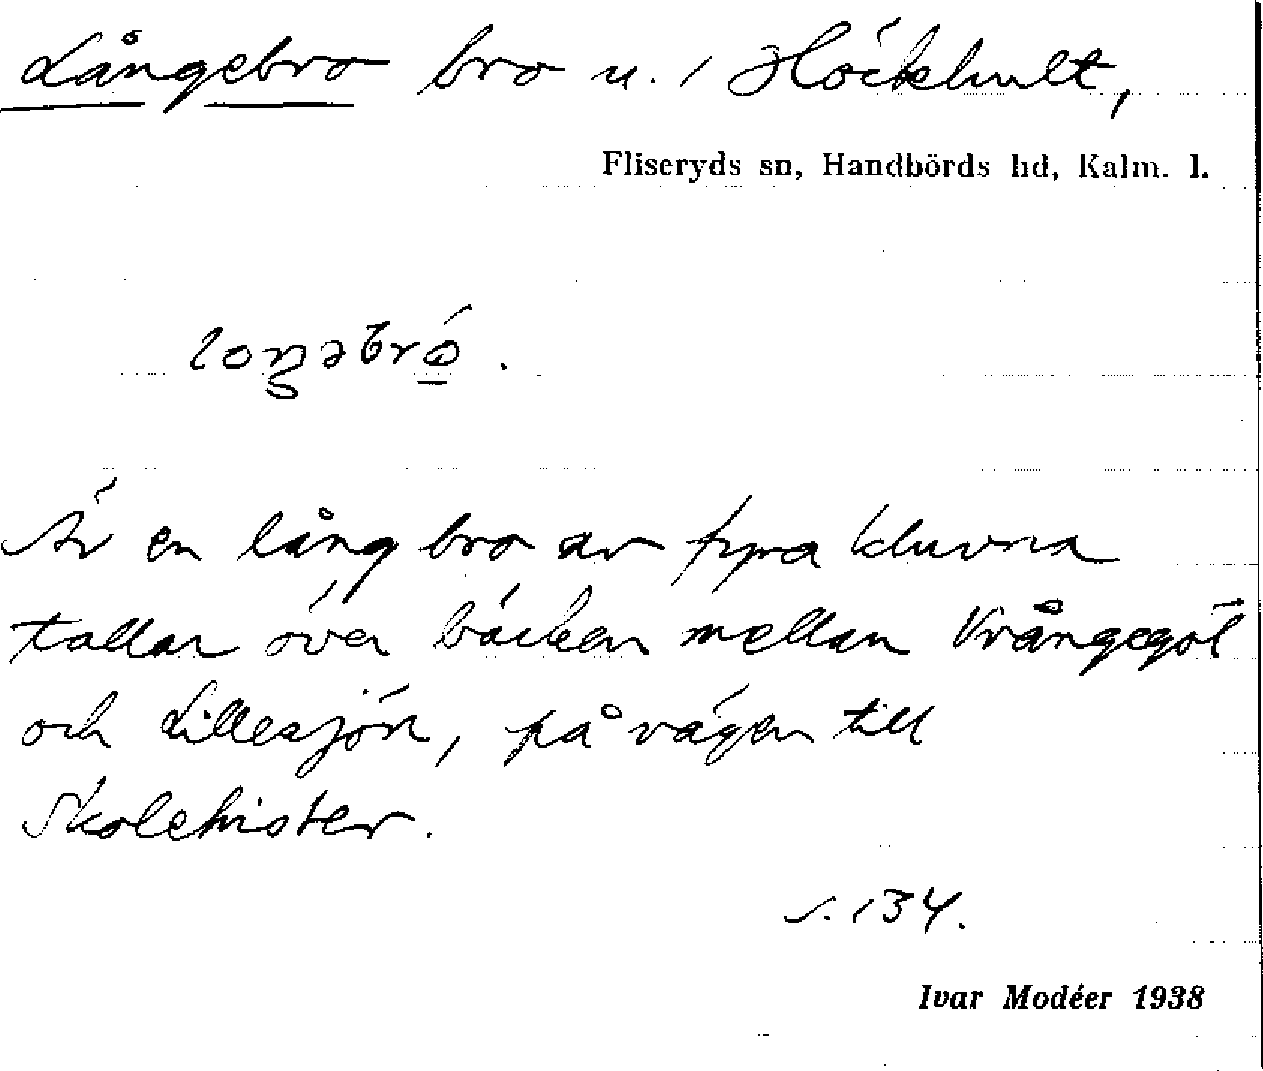 Långebro bro u. 1 Höckhult,
Fliseryds sn, Handbörds hd, Kalm. l.
loŋəbró.
Är en lång bro av fyra kluvna
tallar över bäcken mellan Vrångegöl
och Lillesjön, på vägen till
Skolehister.
s. 134.
Ivar Modéer 1938